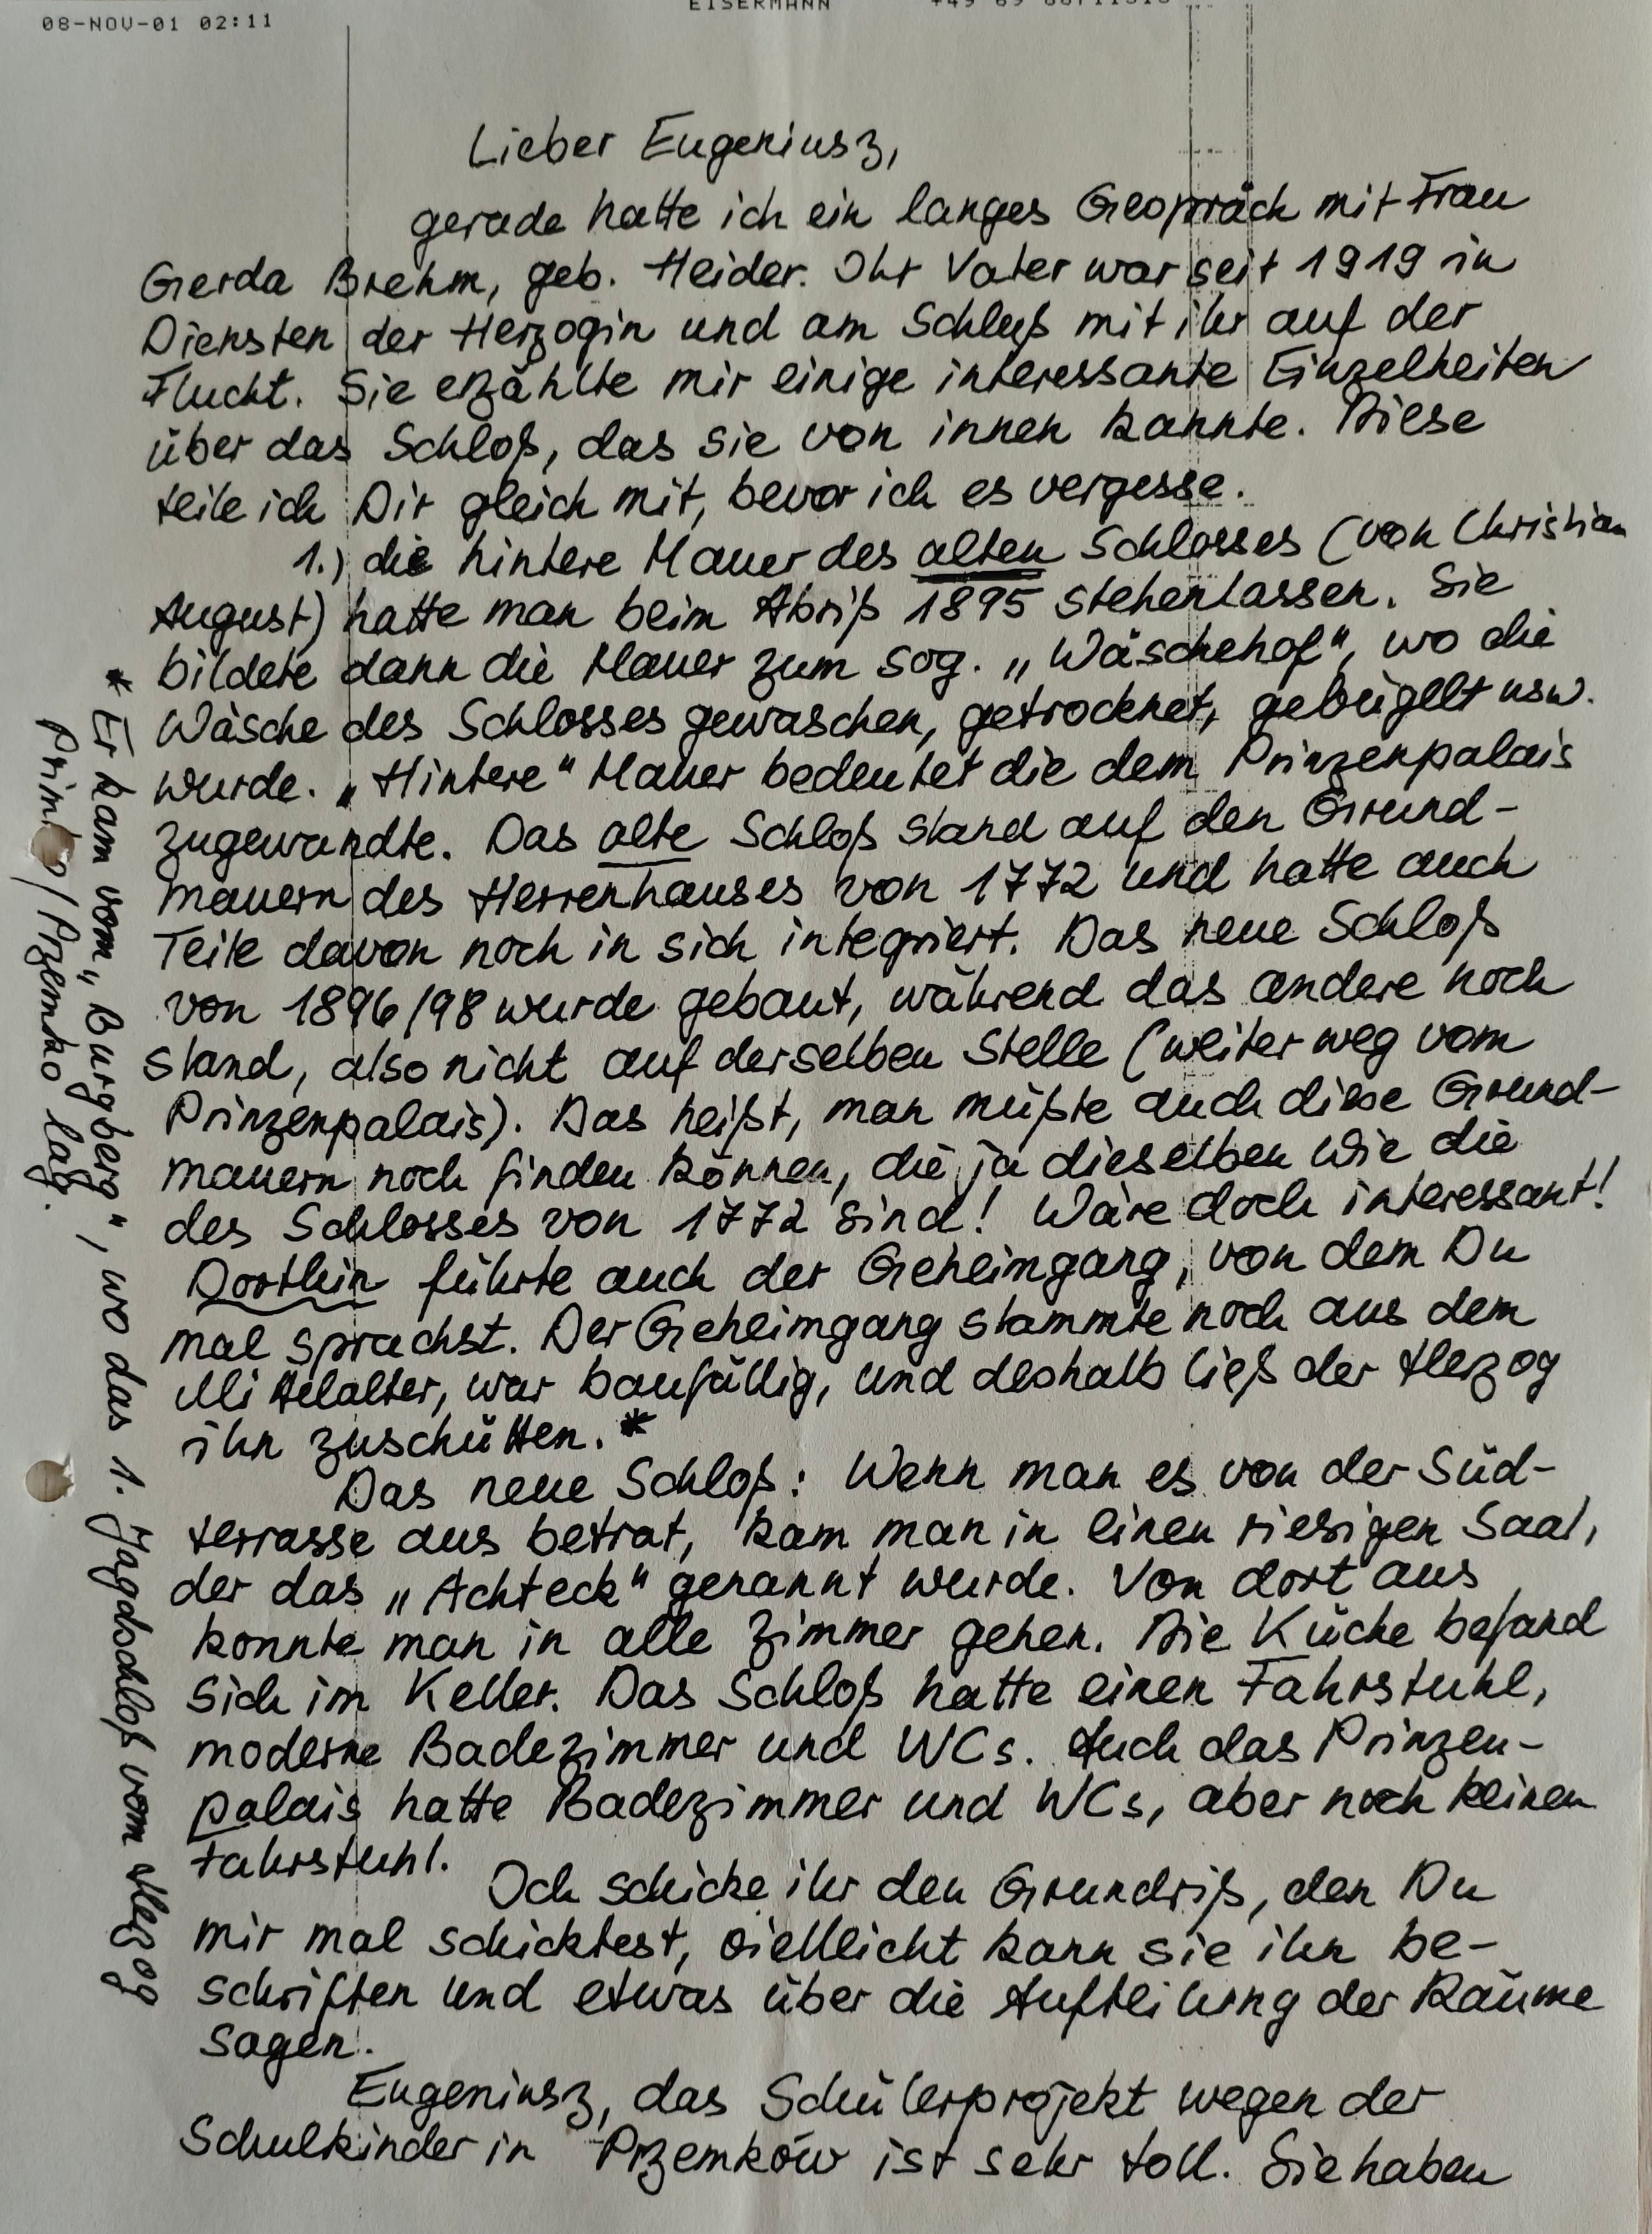 08-NOV-01 02:11
EISERMANN
Lieber Eugeniusz,
gerade hatte ich ein langes Gespräch mit Frau
Gerda Brehm, geb. Heider. Ihr Vater war seit 1919 in
Diensten der Herzogin und am Schluß mit ihr auf der
Flucht. Sie erzählte mir einige interessante Einzelheiten
über das Schloß, das sie von innen kannte. Diese
teile ich Dir gleich mit, bevor ich es vergesse.
1.) die hintere Mauer des alten Schlosses (von Christian
August) hatte man beim Abriß 1895 stehenlassen. Sie
bildete dann die Mauer zum sog. „Wäschehof", wo die
Wäsche des Schlosses gewaschen, getrocknet, gebügelt usw.
wurde. „Hintere" Mauer bedeutet die dem Prinzenpalais
zugewandte. Das alte Schloß stand auf den Grund-
mauern des Herrenhauses von 1772 und hatte auch
Teile davon noch in sich integriert. Das neue Schloß
von 1896/98 wurde gebaut, während das andere noch
stand, also nicht auf derselben Stelle (weiter weg vom
Prinzenpalais). Das heißt, man müßte auch diese Grund-
mauern noch finden können, die ja dieselben wie die
des Schlosses von 1772 sind! Wäre doch interessant!
Dorthin führte auch der Geheimgang, von dem Du
mal sprachst. Der Geheimgang stammte noch aus dem
Mittelalter, war baufällig, und deshalb ließ der Herzog
ihn zuschütten. *
Das neue Schloß: Wenn man es von der Süd-
terrasse aus betrat, kam man in einen riesigen Saal,
der das „Achteck" genannt wurde. Von dort aus
konnte man in alle Zimmer gehen. Die Küche befand
sich im Keller. Das Schloß hatte einen Fahrstuhl,
moderne Badezimmer und WCs. Auch das Prinzen-
palais hatte Badezimmer und WCs, aber noch keinen
Fahrstuhl.
Ich schicke ihr den Grundriß, den Du
mir mal schicktest, vielleicht kann sie ihn be-
schriften und etwas über die Aufteilung der Räume
sagen.
Eugeniusz, das Schülerprojekt wegen der
Schulkinder in Przemków ist sehr toll. Sie haben
* Er kam vom „Burgberg", wo das 1. Jagdschloß vom Herzog
/Przemko lag.